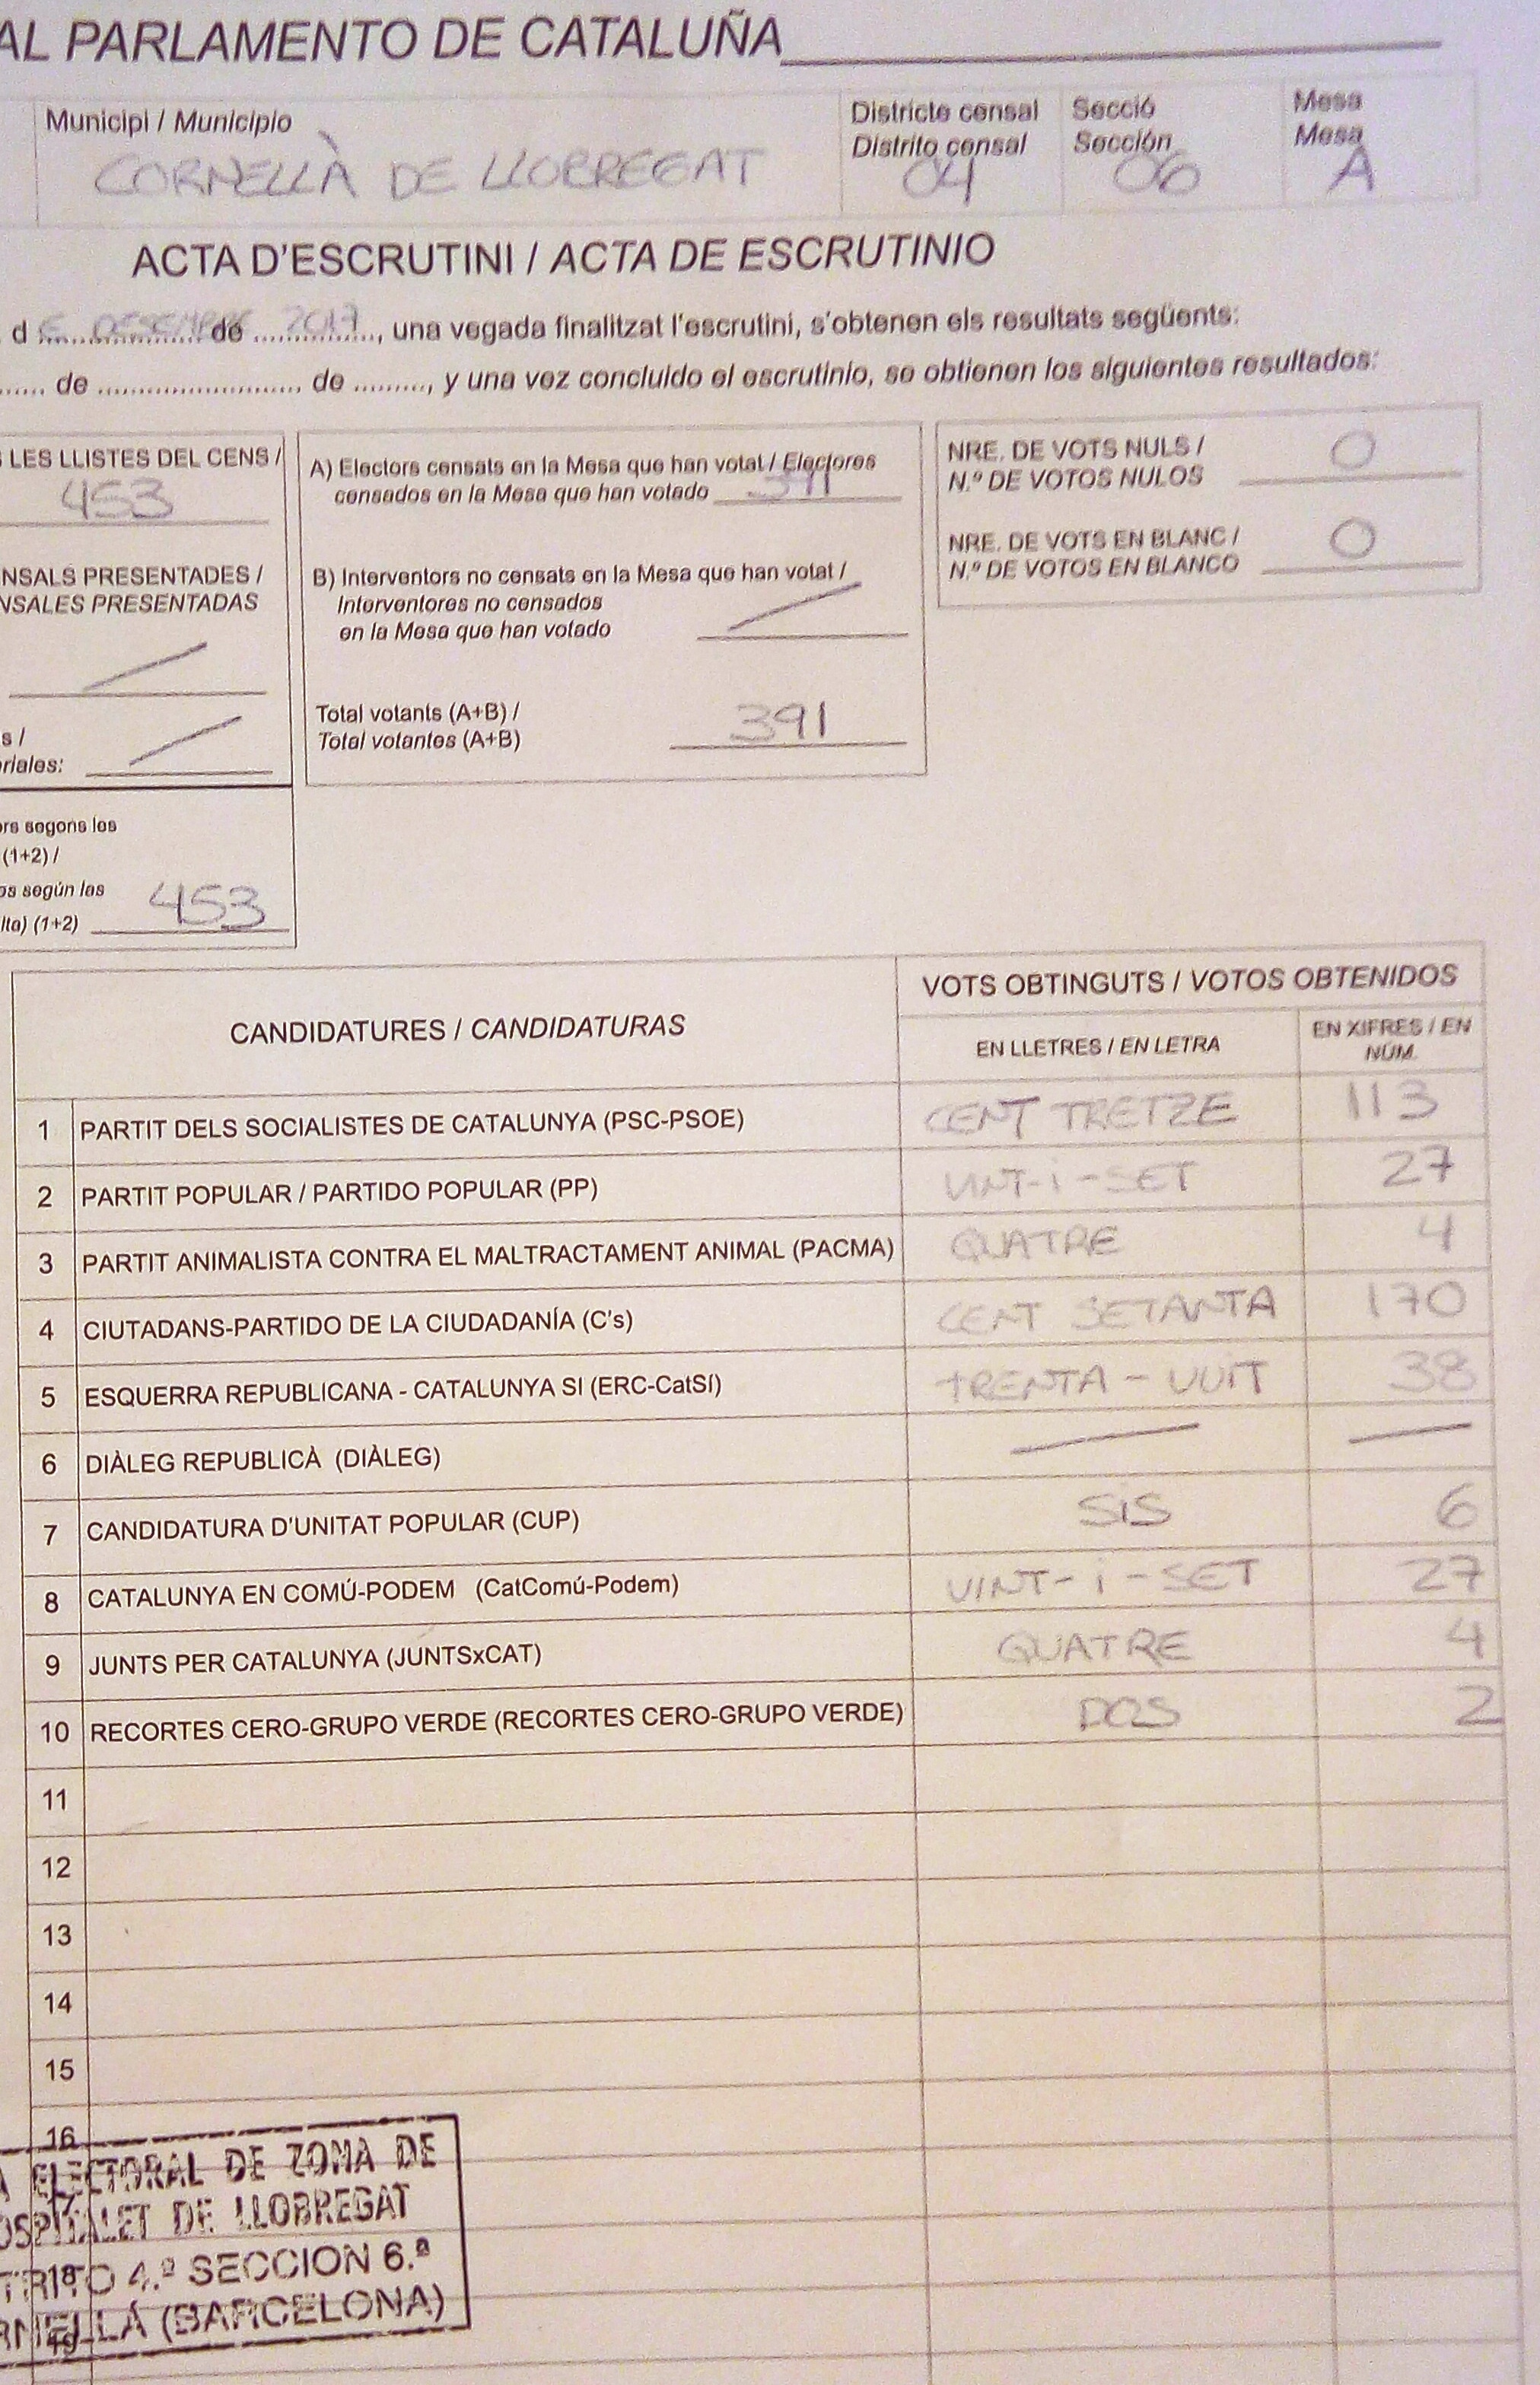 AL PARLAMENTO DE CATALUÑA
Municipi / Municipio
CORNELLÀ DE LLOBREGAT
Districte censal
Distrito censal
04
Secció
Sección
06
Mesa
Mesa
A
ACTA D'ESCRUTINI / ACTA DE ESCRUTINIO
d E DESEMBRE de 2017, una vegada finalitzat l'escrutini, s'obtenen els resultats següents:
de de , y una vez concluido el escrutinio, se obtienen los siguientes resultados:
LES LLISTES DEL CENS /
453
NSALS PRESENTADES /
NSALES PRESENTADAS
s /
riales:
ors segons les
(1+2) /
os según las
lta) (1+2) 453
A) Electors censats en la Mesa que han votat / Electores
censados en la Mesa que han votado 391
B) Interventors no censats en la Mesa que han votat /
Interventores no censados
en la Mesa que han votado
Total votants (A+B) /
Total votantes (A+B) 391
NRE. DE VOTS NULS /
N.º DE VOTOS NULOS 0
NRE. DE VOTS EN BLANC /
N.º DE VOTOS EN BLANCO 0
CANDIDATURES / CANDIDATURAS
VOTS OBTINGUTS / VOTOS OBTENIDOS
EN LLETRES / EN LETRA
EN XIFRES / EN
NÚM.
1 PARTIT DELS SOCIALISTES DE CATALUNYA (PSC-PSOE) CENT TRETZE 113
2 PARTIT POPULAR / PARTIDO POPULAR (PP) VINT-i-SET 27
3 PARTIT ANIMALISTA CONTRA EL MALTRACTAMENT ANIMAL (PACMA) QUATRE 4
4 CIUTADANS-PARTIDO DE LA CIUDADANÍA (C's) CENT SETANTA 170
5 ESQUERRA REPUBLICANA - CATALUNYA SI (ERC-CatSí) TRENTA - VUIT 38
6 DIÀLEG REPUBLICÀ (DIÀLEG)
7 CANDIDATURA D'UNITAT POPULAR (CUP) SIS 6
8 CATALUNYA EN COMÚ-PODEM (CatComú-Podem) VINT-i-SET 27
9 JUNTS PER CATALUNYA (JUNTSxCAT) QUATRE 4
10 RECORTES CERO-GRUPO VERDE (RECORTES CERO-GRUPO VERDE) DOS 2
11
12
13
14
15
16
A ELECTORAL DE ZONA DE
17
OSPITALET DE LLOBREGAT
18
TRITO 4.º SECCION 6.ª
19
RNELLÁ (BARCELONA)